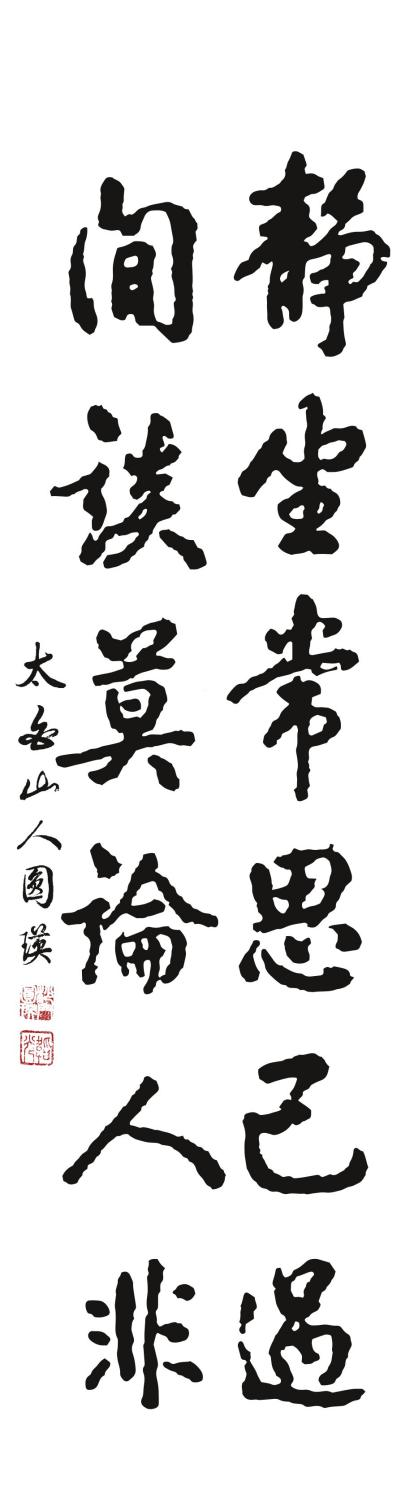 靜坐常思己過
間談莫論人非
太白山人圓瑛